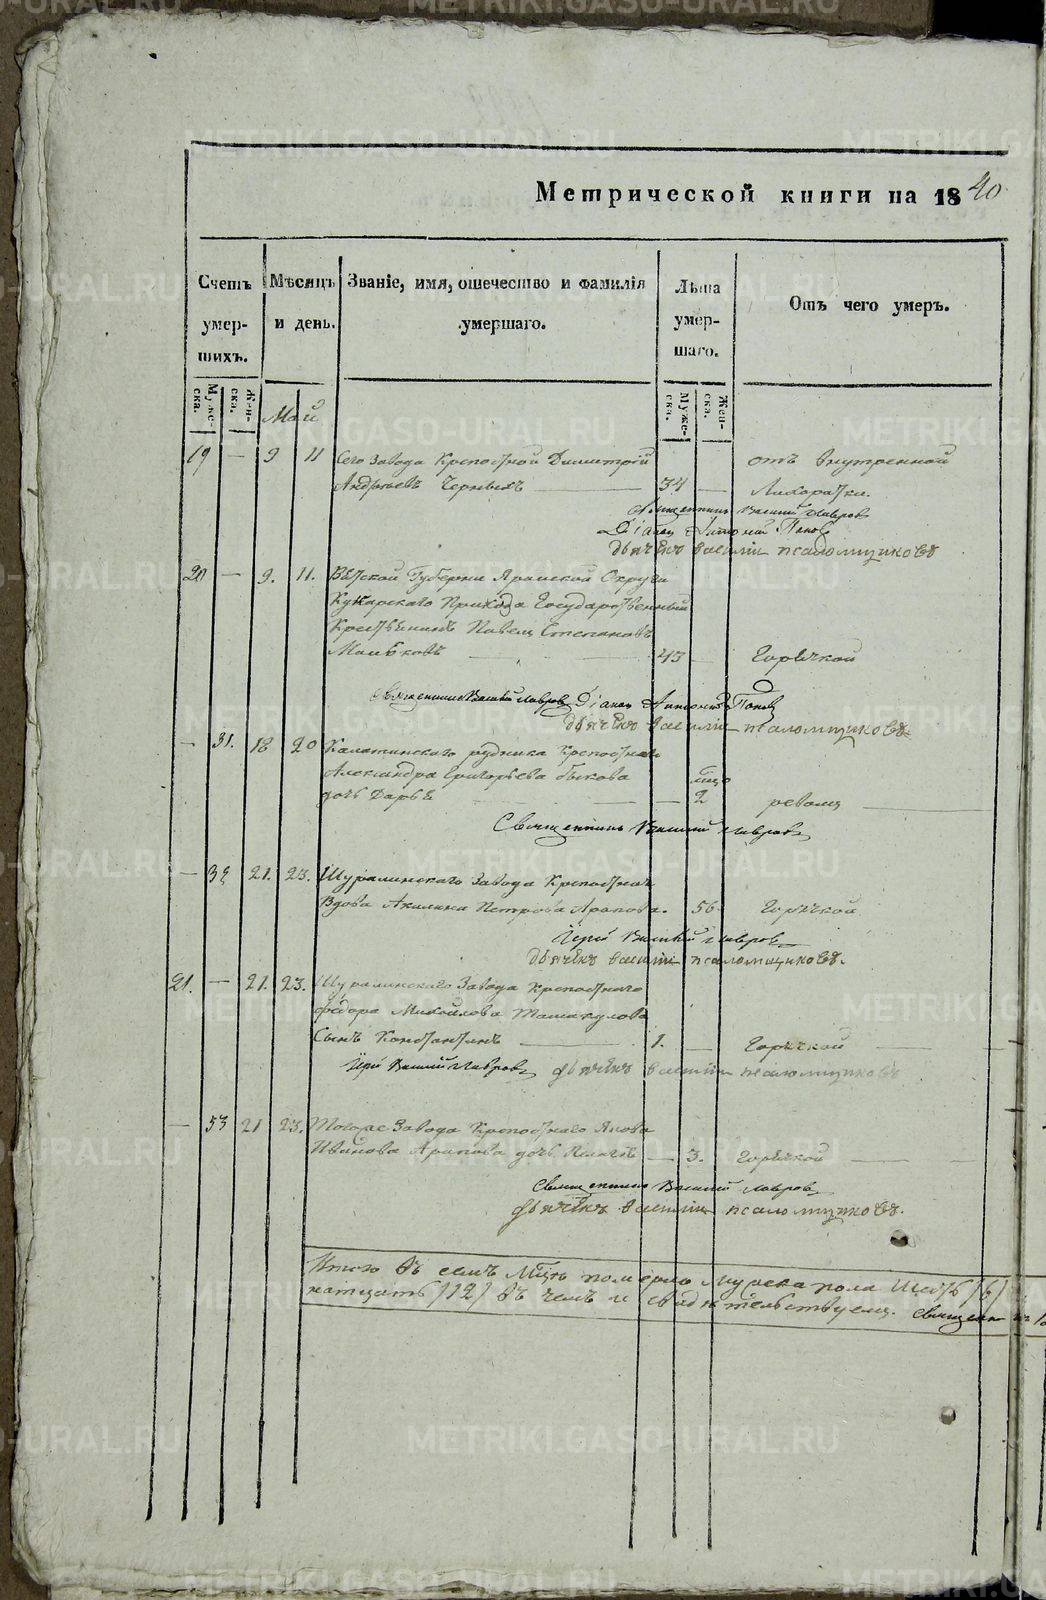 Метрической книги на 1840
Счетъ умер- шихъ.
Мѣсяцъ и день.
Званіе, имя, отечество и фамилія умершаго.
Лѣта умер- шаго.
Отъ чего умеръ.
Муже- ска.
Жен- ска.
Муже- ска.
Жен- ска.
Май
19 — 9 11 Сего Завода Крепостной Димитрий отъ внутренной
Андреевъ Черныхъ 34 — Лихоратки.
Священникъ Василий Лавровъ
Діаконъ Антоній Поповъ
дьячекъ василій псаломщиковъ
20 — 9. 11. Вятской Губерни Яранской Округи
Кукарскаго Прихода Государственный
Крестьянинъ Павелъ Степановъ
43 — Горячкой
Священникъ Василий Лавровъ Діаконъ Антоній Поповъ
дьячекъ василій псаломщиковъ
— 31. 18 20 Калатинскаго рудника Крепостнаго
Александра Григорьева Быкова
дочь Дарья — 2
Священникъ Василий Лавровъ
— 32 21. 23. Шуралинскаго Завода Крепостная
Вдова Акилина Петрова Арапова. 56 Горячкой
Іерей Василий Лавровъ
дьячекъ василій псаломщиковъ.
21. — 21. 23. Шуралинскаго Завода Крепостнаго
федора Михайлова
Сынъ Константинъ 1. — Горячкой
Іерей Василий Лавровъ дьячекъ василій псаломщиковъ
— 33 21 23. Тогоже Завода Крепостнаго Якова
Иванова Арапова дочь — 3. Горячкой
Священникъ Василий Лавровъ
дьячекъ василій псаломщиковъ.
Итого въ семъ Мцѣ померло мужска пола Шесть /6/
натцать /12/ въ чемъ и свидѣтельствуемъ. Священникъ
METRIKI.GASO-URAL.RU